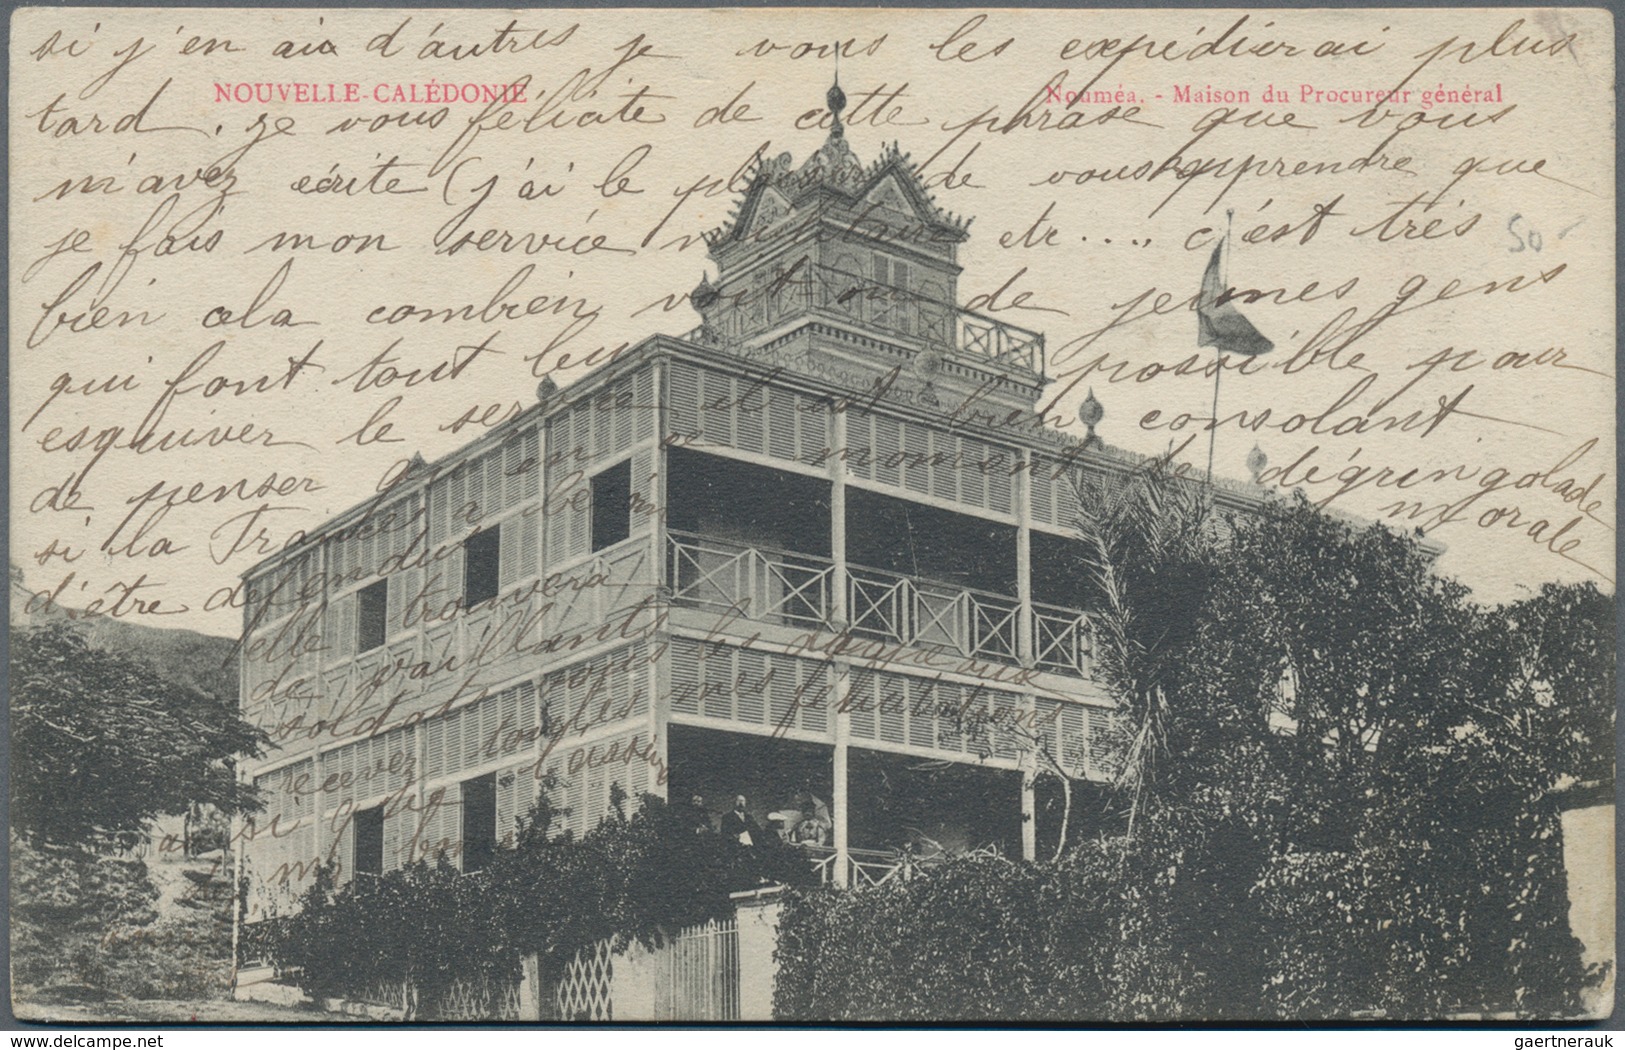 si j'en ai d'autres je vous les expédierai plus
NOUVELLE-CALÉDONIE
Nouméa. - Maison du Procureur général
tard. je vous félicite de cette phrase que vous
m'avez écrite (j'ai le plaisir de vous apprendre que
je fais mon service militaire etc.... c'est très
50
bien cela combien voit on de jeunes gens
qui font tout leur possible pour
esquiver le service il est bien consolant
de penser qu'en ce moment de dégringolade
morale
si la France a besoin
d'être défendue
elle trouvera
de vaillants
soldats
recevez toutes mes félicitations
ainsi que